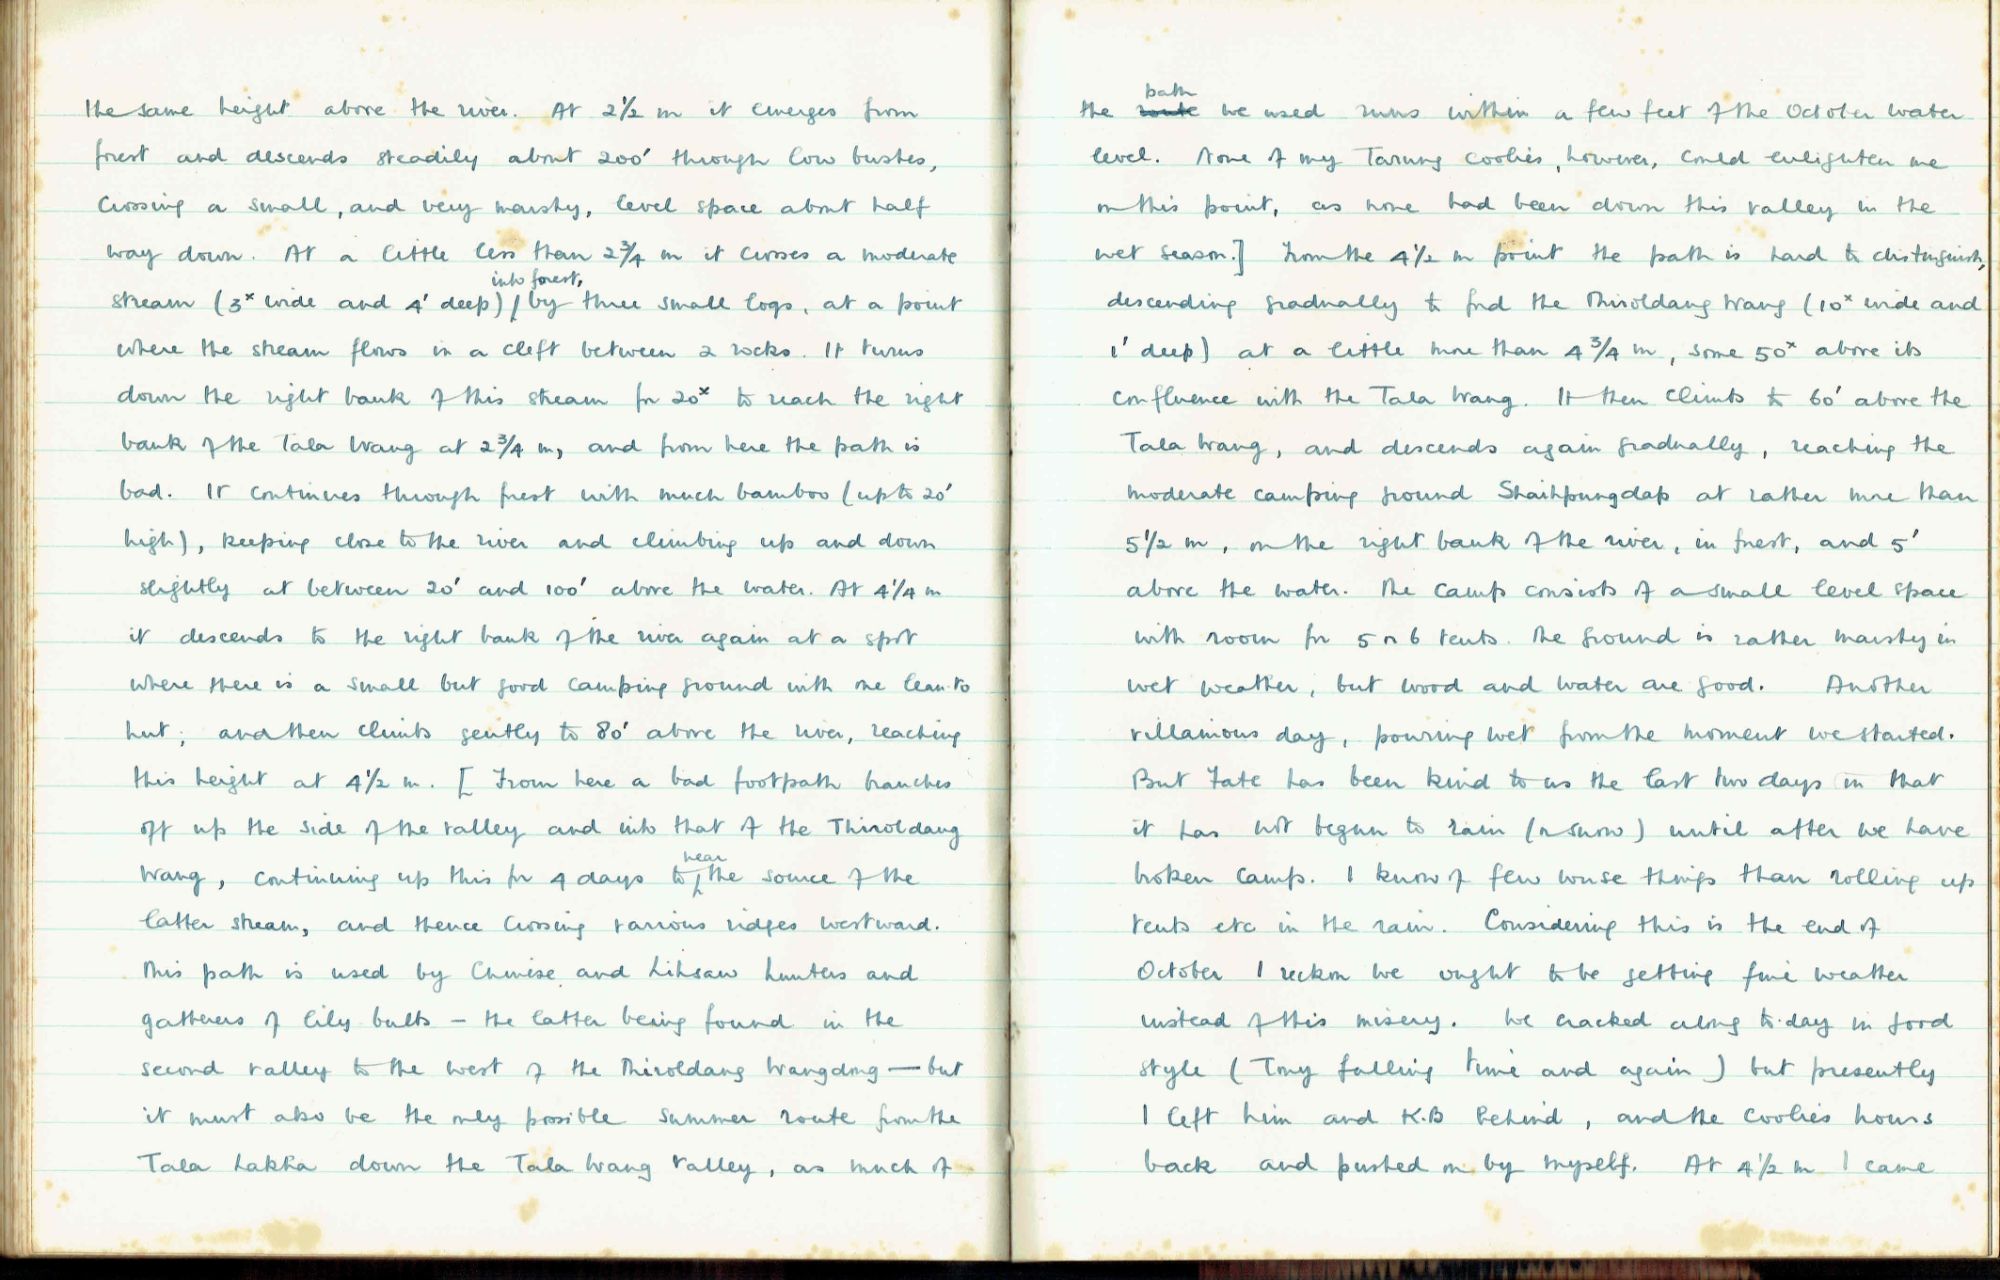 the same height above the river. At 2½ m it emerges from
forest and descends steadily about 200' through low bushes,
crossing a small, and very marshy, level space about half
way down. At a little less than 2¾ m it crosses a moderate
into forest,
stream (3ˣ wide and 4' deep) by three small logs, at a point
where the stream flows in a cleft between 2 rocks. It turns
down the right bank of this stream for 20ˣ to reach the right
bank of the Tala Wang at 2¾ m, and from here the path is
bad. It continues through forest with much bamboo (up to 20'
high), keeping close to the river and climbing up and down
slightly at between 20' and 100' above the water. At 4¼ m
it descends to the right bank of the river again at a spot
where there is a small but good camping ground with one lean-to
hut; and then climbs gently to 80' above the river, reaching
this height at 4½ m. [From here a bad footpath branches
off up the side of the valley and into that of the Thiroldang
near
Wang, continuing up this for 4 days to the source of the
latter stream, and thence crossing various ridges westward.
This path is used by Chinese and Lihsaw hunters and
gatherers of lily bulbs — the latter being found in the
second valley to the west of the Thiroldang Wangdong — but
it must also be the only possible summer route from the
Tala Lakha down the Tala Wang valley, as much of
path
the route we used runs within a few feet of the October water
level. None of my Tarung coolies, however, could enlighten me
on this point, as none had been down this valley in the
wet season.] From the 4½ m point the path is hard to distinguish,
descending gradually to ford the Thiroldang Wang (10ˣ wide and
1' deep) at a little more than 4¾ m, some 50ˣ above its
confluence with the Tala Wang. It then climbs to 60' above the
Tala Wang, and descends again gradually, reaching the
moderate camping ground Shaihpungdap at rather more than
5½ m, on the right bank of the river, in forest, and 5'
above the water. The camp consists of a small level space
with room for 5 or 6 tents. The ground is rather marshy in
wet weather, but wood and water are good. Another
villainous day, pouring wet from the moment we started.
But Fate has been kind to us the last two days in that
it has not begun to rain (or snow) until after we have
broken camp. I know of few worse things than rolling up
tents etc in the rain. Considering this is the end of
October I reckon we ought to be getting fine weather
instead of this misery. We cracked along to-day in good
style (Tony falling time and again) but presently
I left him and K.B behind, and the coolies hours
back and pushed on by myself. At 4½ m I came